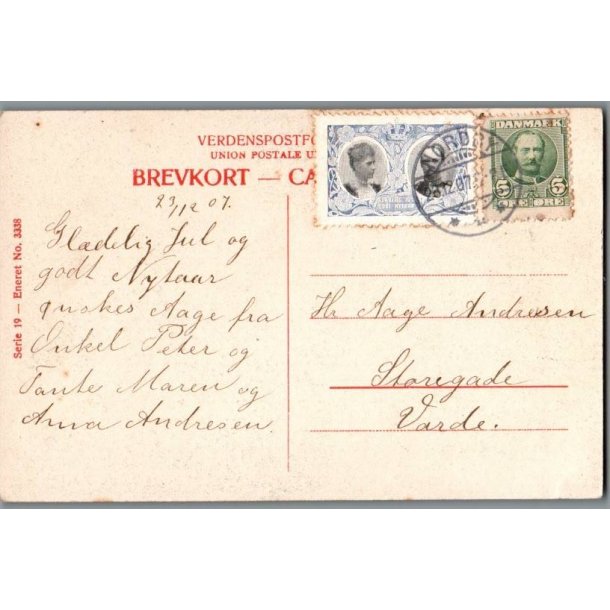 VERDENSPOSTFO
UNION POSTALE U
BREVKORT — CA
23/12 07.
Glædelig Jul og
godt Nytaar
ønskes Aage fra
Onkel Peter og
Tante Maren og
Anna Andresen.
Hr Aage Andresen
Storegade
Varde.
Serie 19 — Eneret No. 3338
NORDBY
DANMARK
5 5
ØRE ØRE